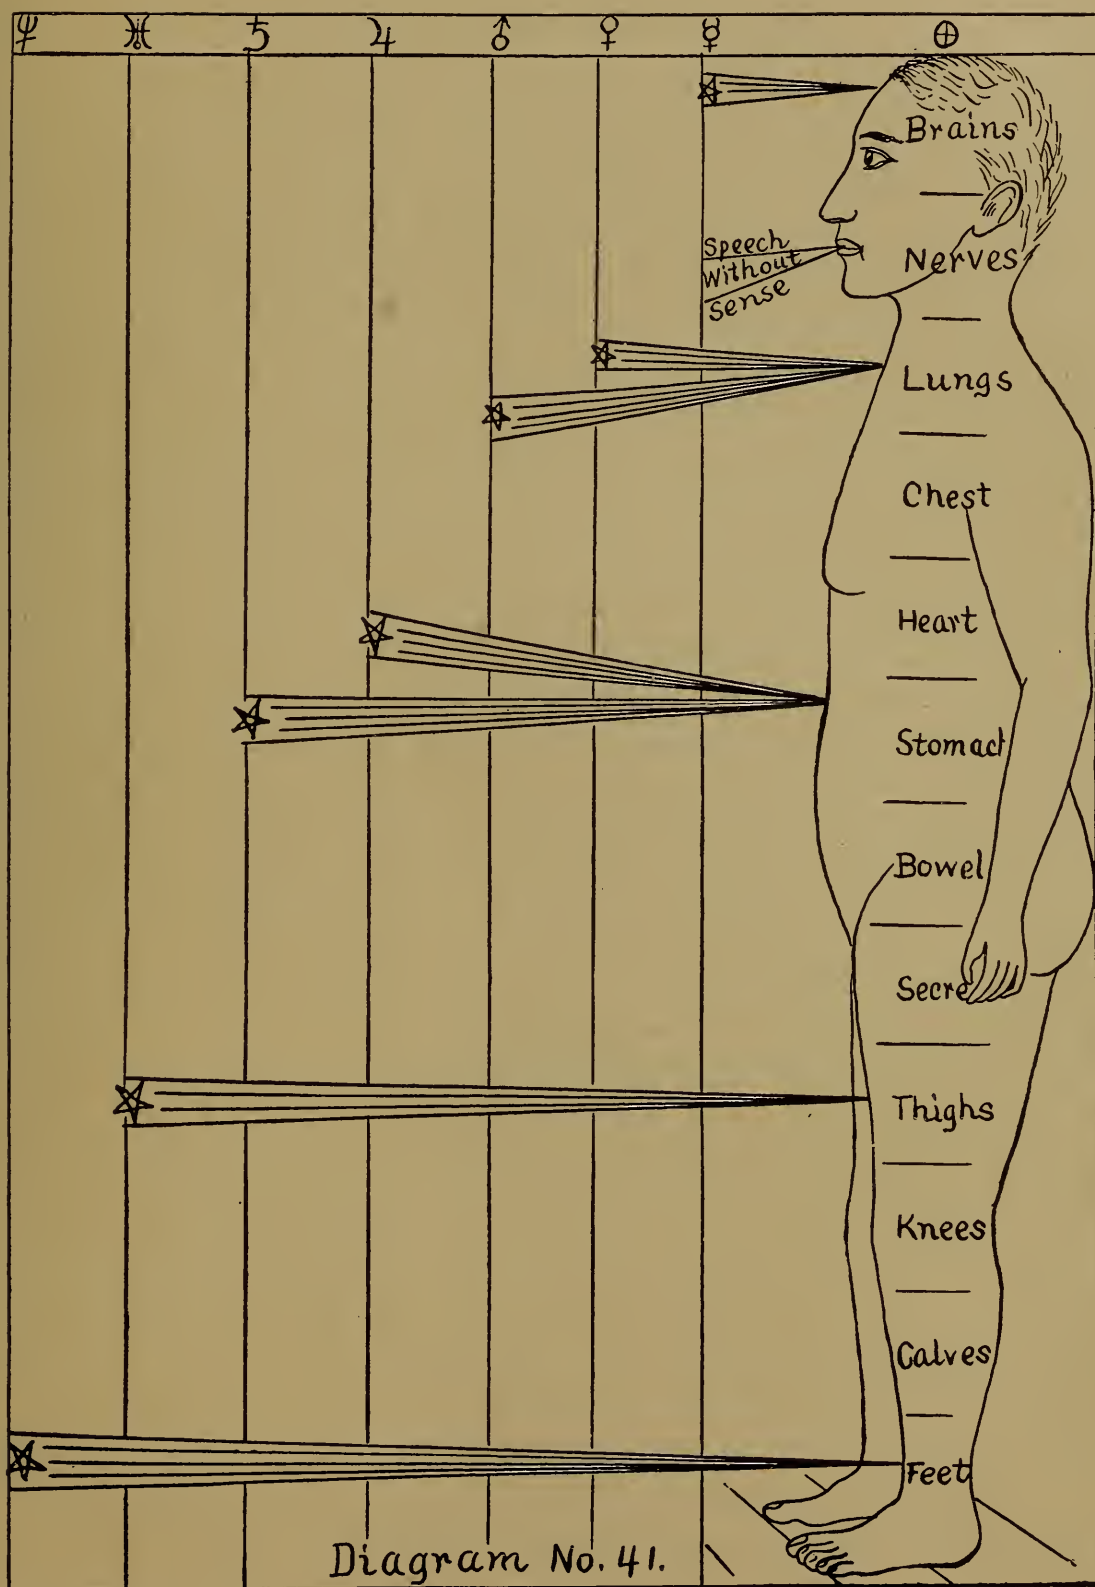 ♆ ♅ ♄ ♃ ♂ ♀ ☿ ⊕
Brains
Speech
Without
Sense
Nerves
Lungs
Chest
Heart
Stomach
Bowel
Secre
Thighs
Knees
Calves
Feet
Diagram No. 41.